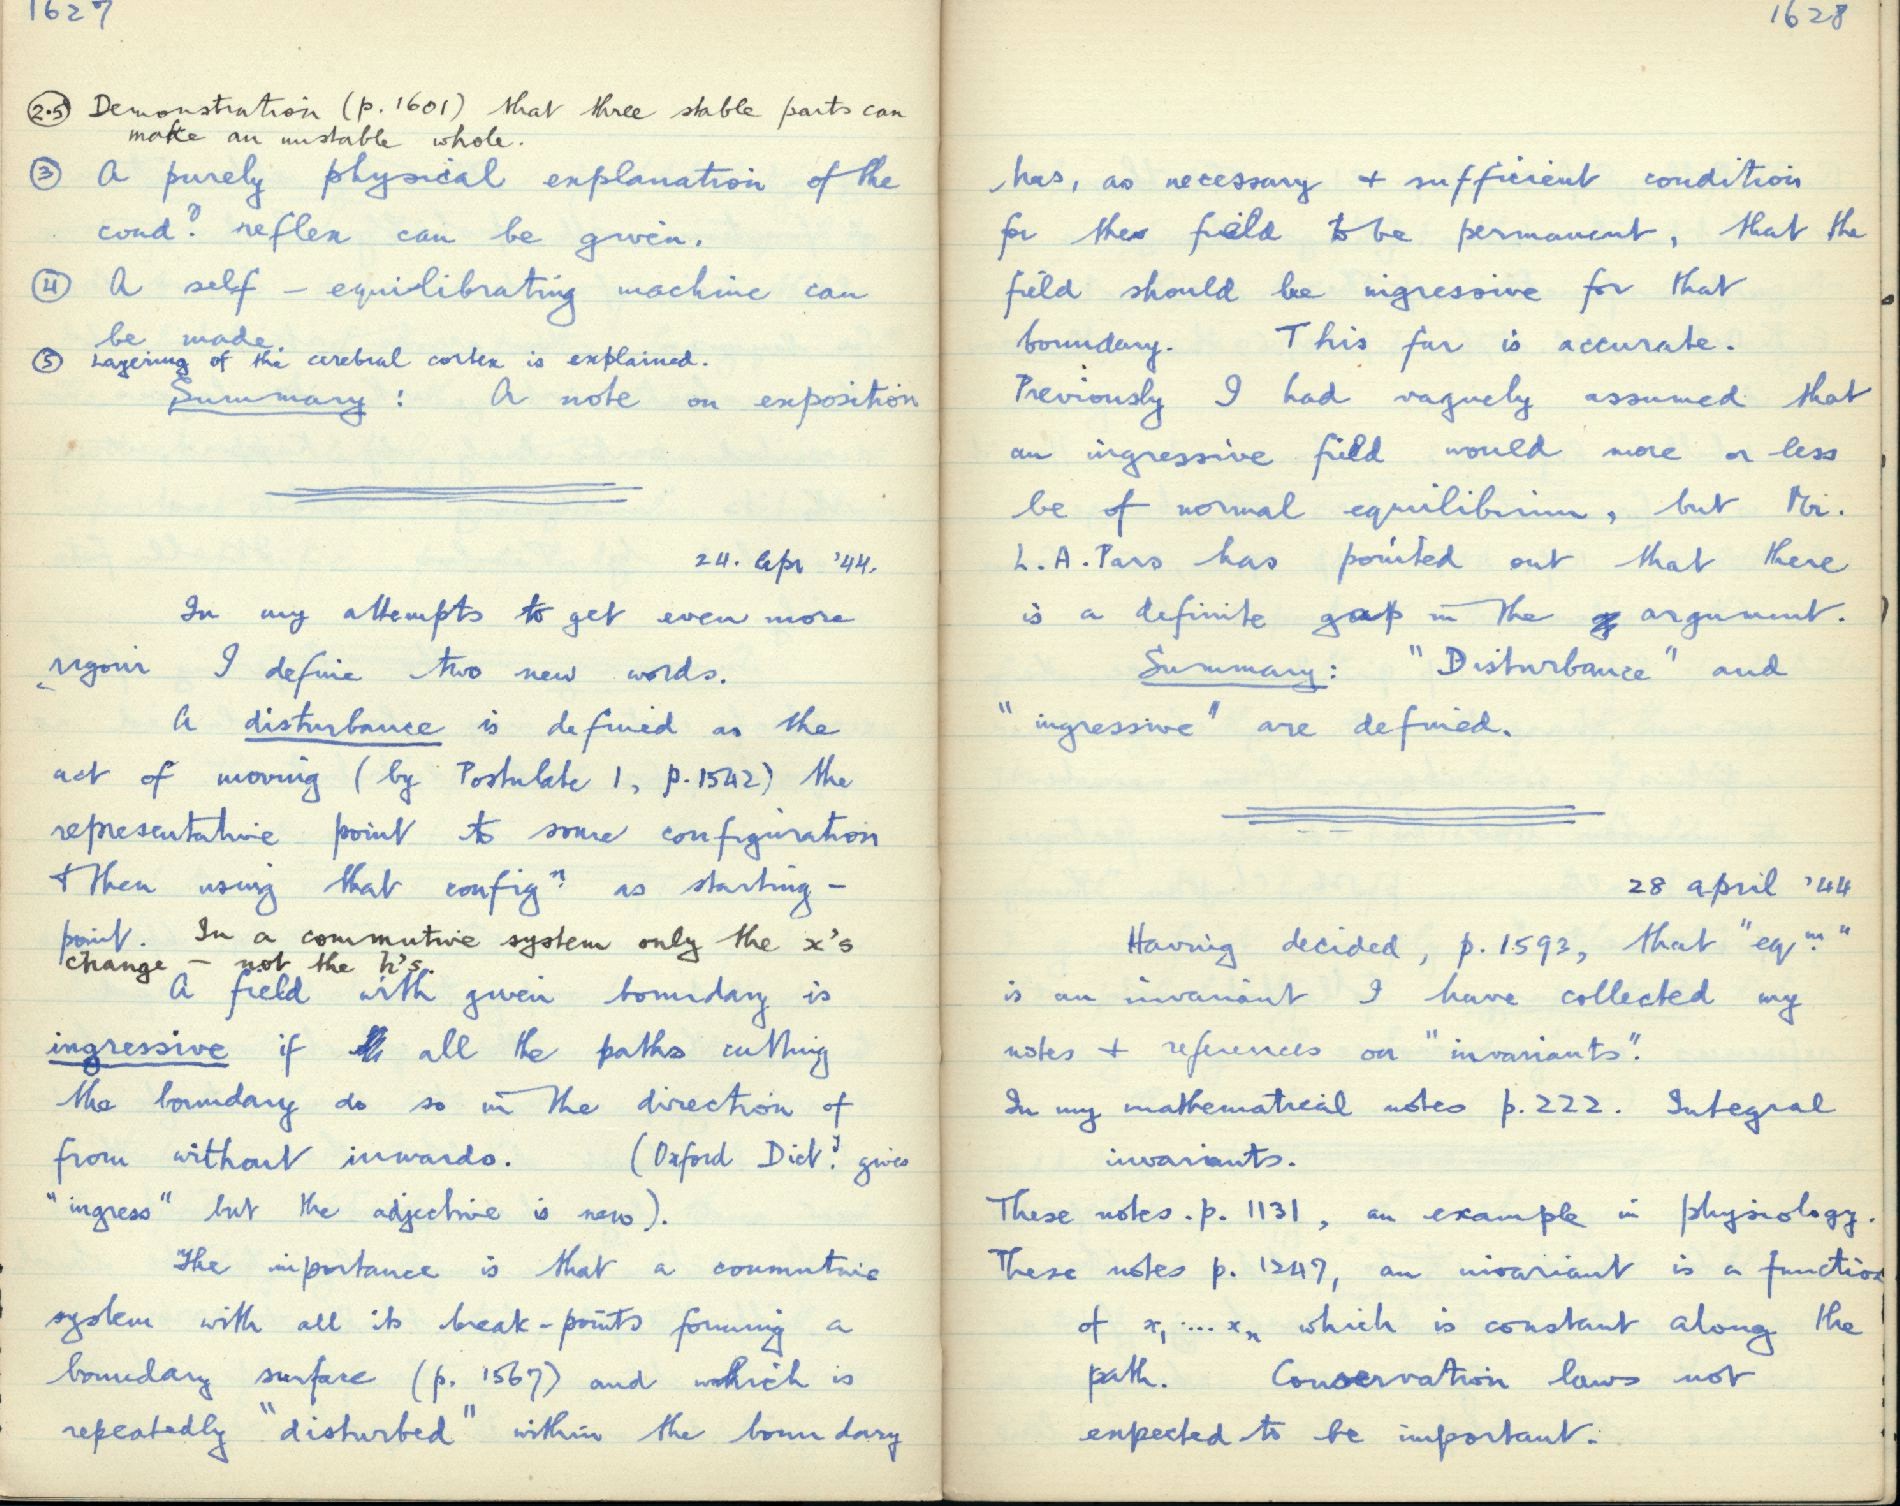 1627
2.5 Demonstration (p. 1601) that three stable parts can
make an unstable whole.
3 A purely physical explanation of the
condn. reflex can be given.
4 A self-equilibrating machine can
be made.
5 Layering of the cerebral cortex is explained.
Summary: A note on exposition
24. Apr '44.
In my attempts to get even more
rigour I define two new words.
A disturbance is defined as the
act of moving (by Postulate 1, p. 1542) the
representative point to some configuration
& then using that config.n as starting-
point. In a commutive system only the x's
change – not the h's.
A field with given boundary is
ingressive if all the paths cutting
the boundary do so in the direction of
from without inwards. (Oxford Dict.y gives
"ingress" but the adjective is new).
The importance is that a commutive
system with all its break-points forming a
boundary surface (p. 1567) and which is
repeatedly "disturbed" within the boundary
1628
has, as necessary + sufficient condition
for the field to be permanent, that the
field should be ingressive for that
boundary. This far is accurate.
Previously I had vaguely assumed that
an ingressive field would more or less
be of normal equilibrium, but Mr.
L.A. Pars has pointed out that there
is a definite gap in the argument.
Summary: "Disturbance" and
"ingressive" are defined.
28 April '44
Having decided, p. 1593, that "eqm."
is an invariant I have collected my
notes + references on "invariants".
In my mathematical notes p. 222. Integral
invariants.
These notes. p. 1131, an example in physiology.
These notes p. 1247, an invariant is a function
of x₁ .... xₙ which is constant along the
path. Conservation laws not
expected to be important.